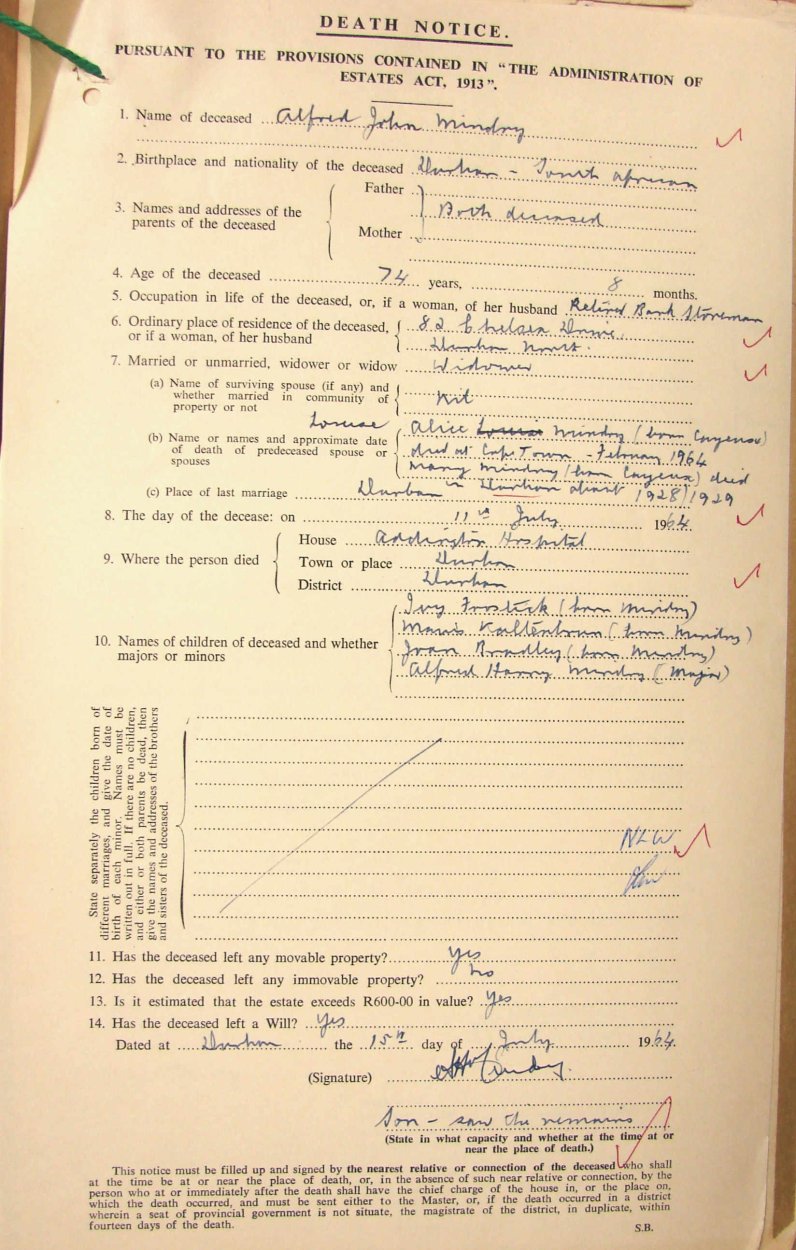 DEATH NOTICE.
PURSUANT TO THE PROVISIONS CONTAINED IN "THE ADMINISTRATION OF
ESTATES ACT, 1913".
1. Name of deceased Alfred John Mindry
2. Birthplace and nationality of the deceased Durban - South African
3. Names and addresses of the parents of the deceased
Father
Both deceased
Mother
4. Age of the deceased 74 years, 8 months.
5. Occupation in life of the deceased, or, if a woman, of her husband Retired Bank Storeman
6. Ordinary place of residence of the deceased, 82 Chelsea Drive,
or if a woman, of her husband Durban North.
7. Married or unmarried, widower or widow Widower
(a) Name of surviving spouse (if any) and
whether married in community of Nil
property or not
Louise
(b) Name or names and approximate date
of death of predeceased spouse or
spouses
Alice Louisa Mindry (born Cayeux)
died at Cape Town - February 1964
Mary Mindry (born Cayeux) died
in Durban about 1928/1929
(c) Place of last marriage Durban
8. The day of the decease: on 11th July 1964.
9. Where the person died
House Addington Hospital
Town or place Durban
District Durban
10. Names of children of deceased and whether
majors or minors
Ivy Frostick (born Mindry)
Mavis Kaltenbrun (born Mindry)
Joan Bradley (born Mindry)
Alfred Harry Mindry (Major)
State separately the children born of
different marriages, and give the date of
birth of each minor. Names must be
written out in full. If there are no children,
and either or both parents be dead, then
give the names and addresses of the brothers
and sisters of the deceased.
11. Has the deceased left any movable property? Yes
12. Has the deceased left any immovable property? No
13. Is it estimated that the estate exceeds R600-00 in value? Yes
14. Has the deceased left a Will? Yes
Dated at Durban the 15th day of July 1964.
(Signature)
Son - saw the remains
(State in what capacity and whether at the time at or
near the place of death.)
This notice must be filled up and signed by the nearest relative or connection of the deceased who shall
at the time be at or near the place of death, or, in the absence of such near relative or connection, by the
person who at or immediately after the death shall have the chief charge of the house in, or the place on,
which the death occurred, and must be sent either to the Master, or, if the death occurred in a district
wherein a seat of provincial government is not situate, the magistrate of the district, in duplicate, within
fourteen days of the death.
S.B.